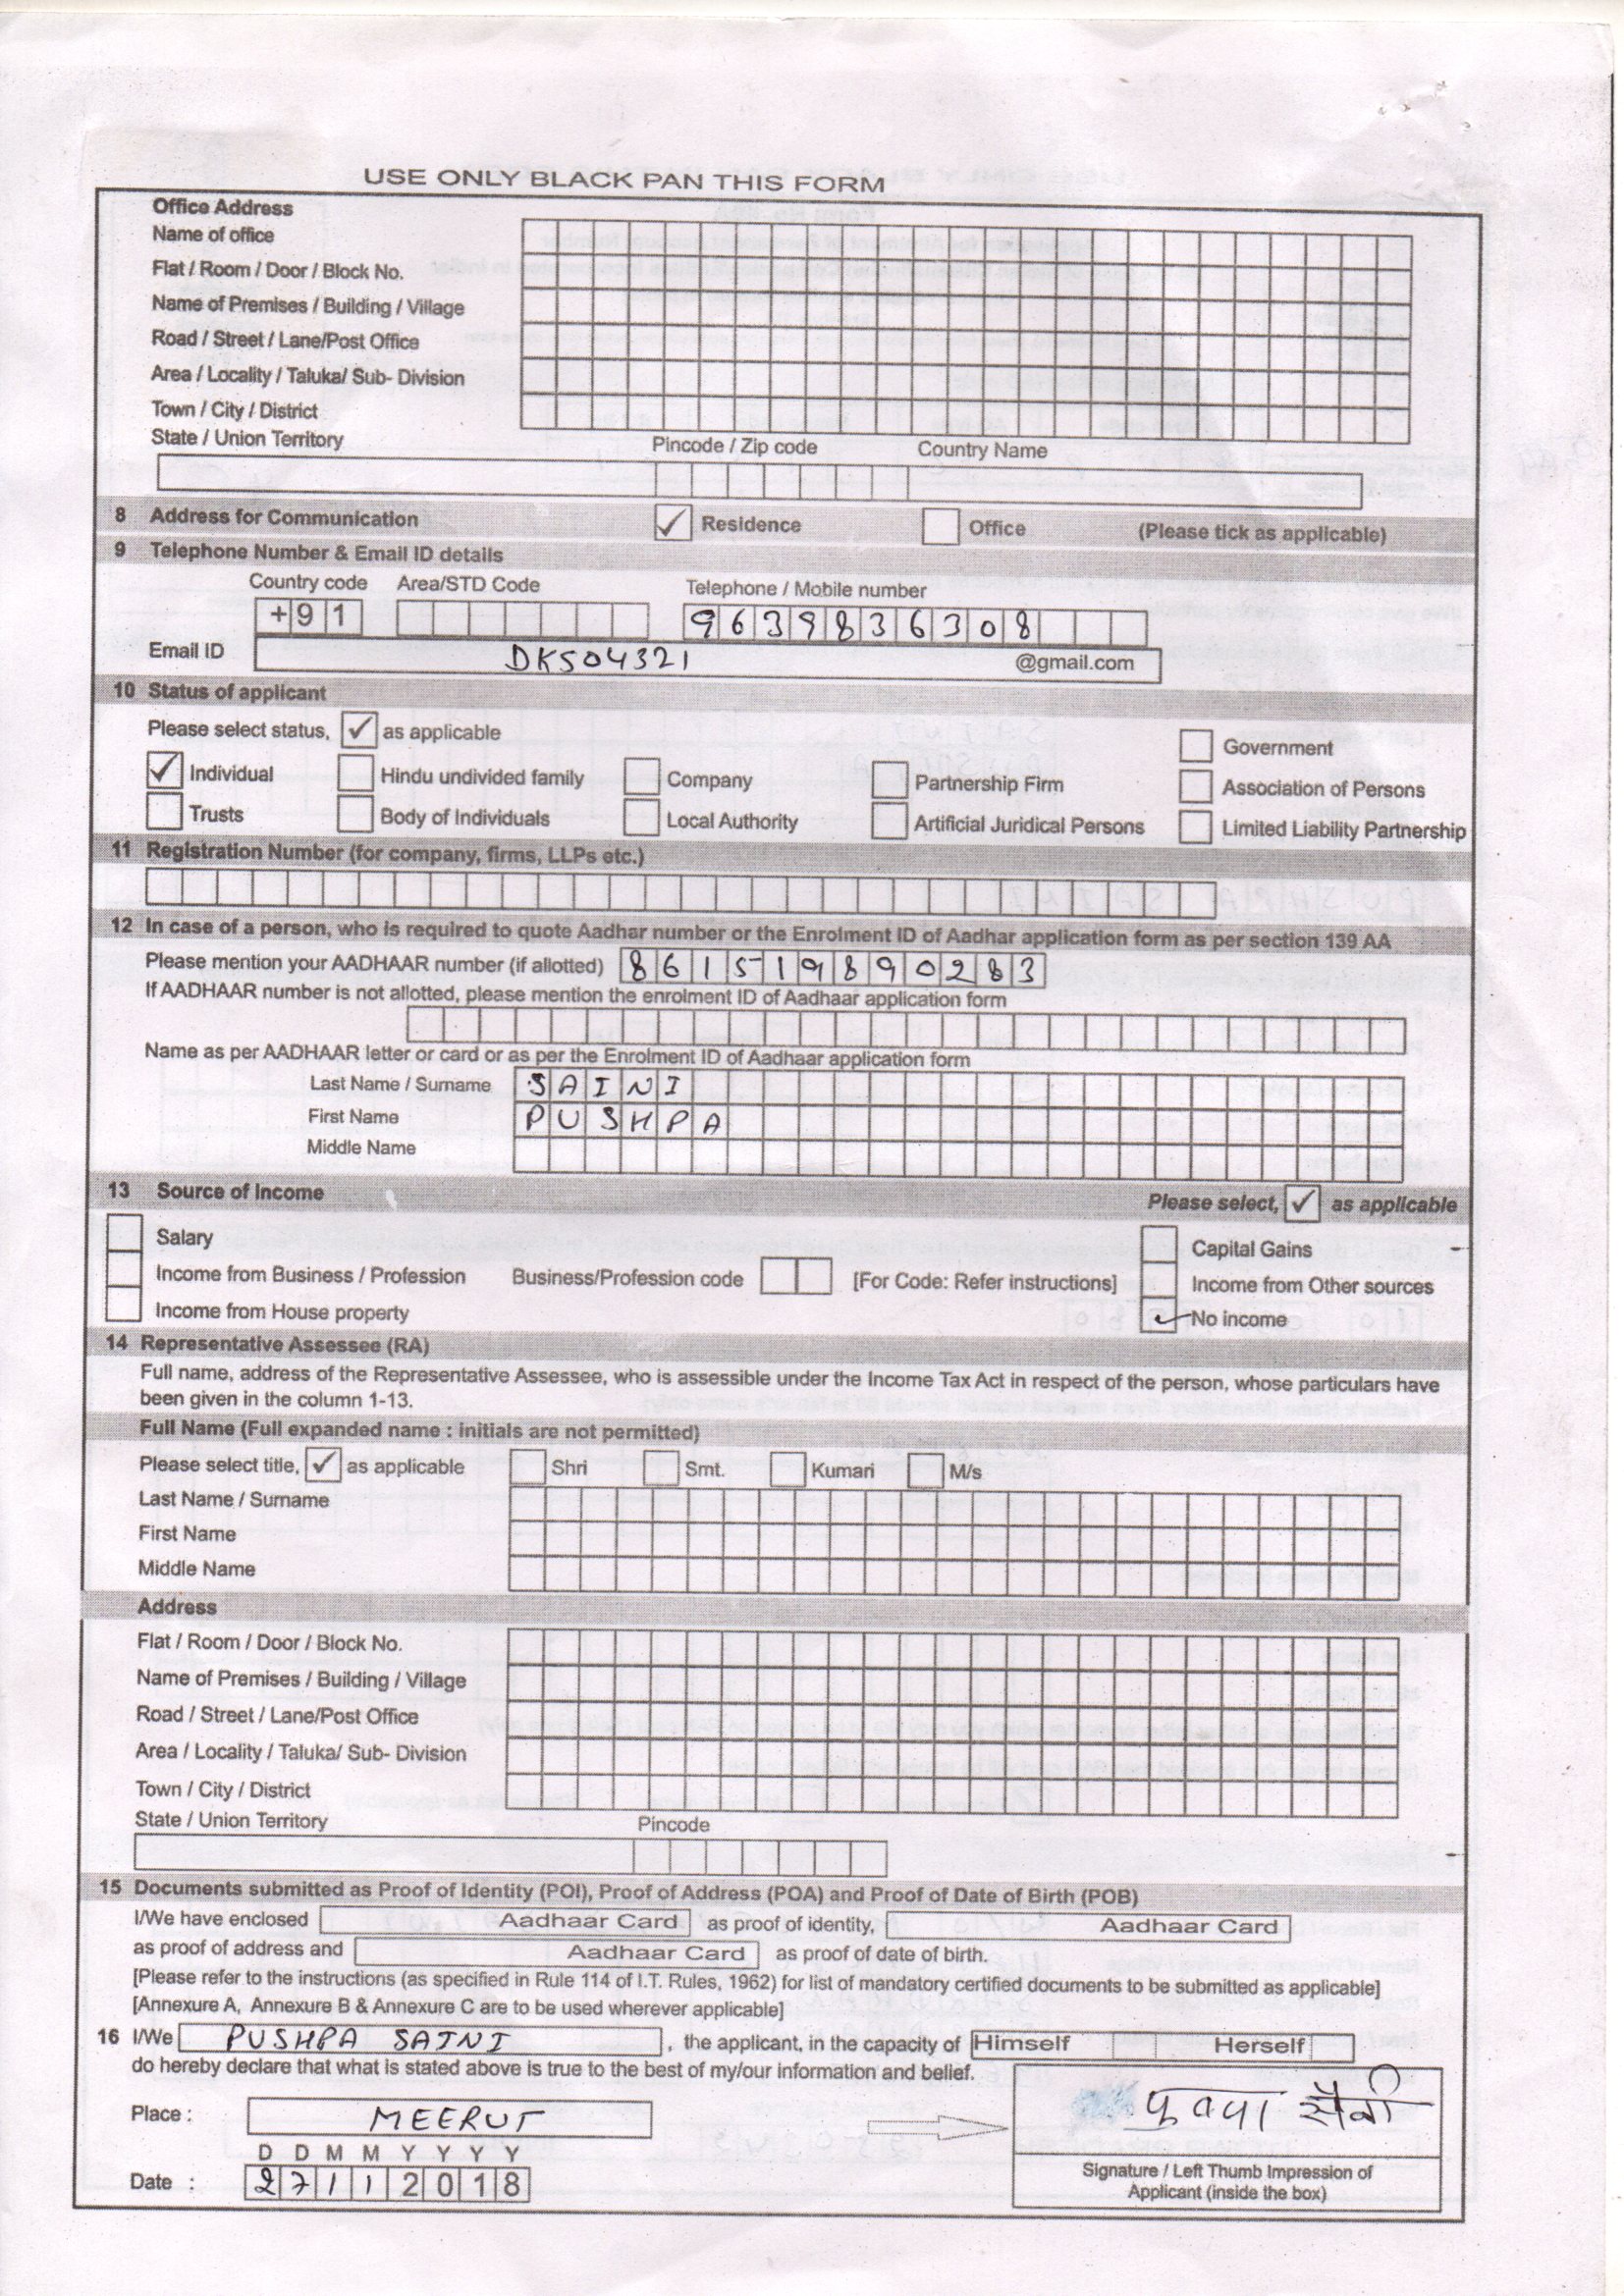 USE ONLY BLACK PAN THIS FORM
Office Address
Name of office
Flat / Room / Door / Block No.
Name of Premises / Building / Village
Road / Street / Lane/Post Office
Area / Locality / Taluka/ Sub- Division
Town / City / District
State / Union Territory Pincode / Zip code Country Name
8 Address for Communication ✓ Residence Office (Please tick as applicable)
9 Telephone Number & Email ID details
Country code Area/STD Code Telephone / Mobile number
+91 9639836308
Email ID DKS04321 @gmail.com
10 Status of applicant
Please select status, ✓ as applicable Government
✓ Individual Hindu undivided family Company Partnership Firm Association of Persons
Trusts Body of Individuals Local Authority Artificial Juridical Persons Limited Liability Partnership
11 Registration Number (for company, firms, LLPs etc.)
12 In case of a person, who is required to quote Aadhar number or the Enrolment ID of Aadhar application form as per section 139 AA
Please mention your AADHAAR number (if allotted) 861519890283
If AADHAAR number is not allotted, please mention the enrolment ID of Aadhaar application form
Name as per AADHAAR letter or card or as per the Enrolment ID of Aadhaar application form
Last Name / Surname SAINI
First Name PUSHPA
Middle Name
13 Source of Income Please select, ✓ as applicable
Salary Capital Gains
Income from Business / Profession Business/Profession code [For Code: Refer instructions] Income from Other sources
Income from House property ✓ No income
14 Representative Assessee (RA)
Full name, address of the Representative Assessee, who is assessible under the Income Tax Act in respect of the person, whose particulars have
been given in the column 1-13.
Full Name (Full expanded name : initials are not permitted)
Please select title, ✓ as applicable Shri Smt. Kumari M/s
Last Name / Surname
First Name
Middle Name
Address
Flat / Room / Door / Block No.
Name of Premises / Building / Village
Road / Street / Lane/Post Office
Area / Locality / Taluka/ Sub- Division
Town / City / District
State / Union Territory Pincode
15 Documents submitted as Proof of Identity (POI), Proof of Address (POA) and Proof of Date of Birth (POB)
I/We have enclosed Aadhaar Card as proof of identity, Aadhaar Card
as proof of address and Aadhaar Card as proof of date of birth.
[Please refer to the instructions (as specified in Rule 114 of I.T. Rules, 1962) for list of mandatory certified documents to be submitted as applicable]
[Annexure A, Annexure B & Annexure C are to be used wherever applicable]
16 I/We PUSHPA SAINI , the applicant, in the capacity of Himself Herself
do hereby declare that what is stated above is true to the best of my/our information and belief.
Place : MEERUT
सैनी
D D M M Y Y Y Y
Date : 27112018
Signature / Left Thumb Impression of
Applicant (inside the box)